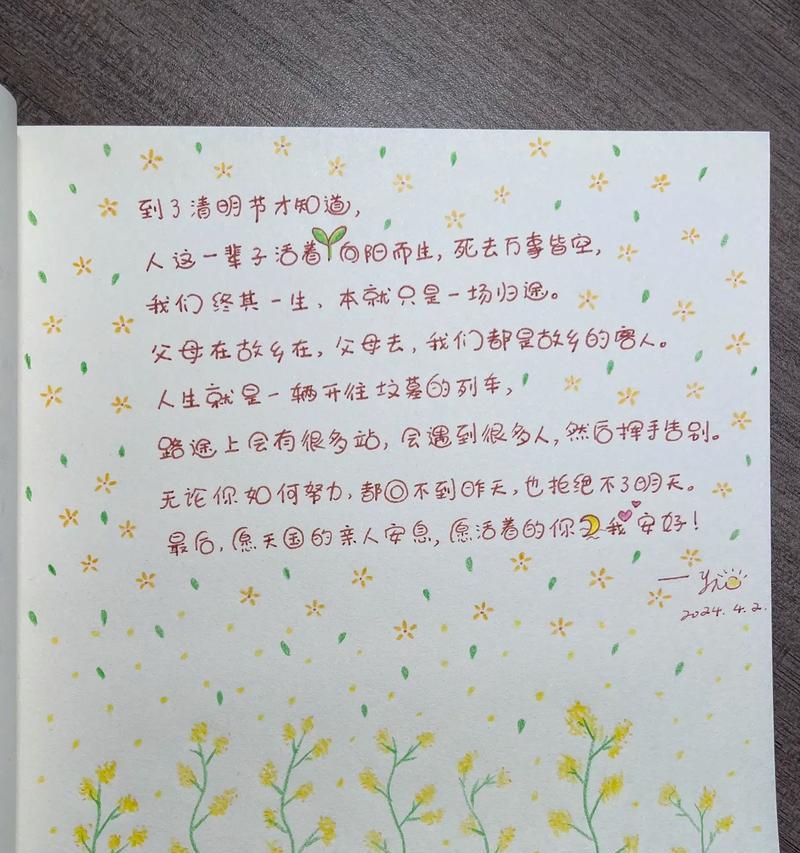 到了清明节才知道,
人这一辈子活着向阳而生,死去万事皆空,
我们终其一生、本就只是一场归途。
父母在故乡在,父母去,我们都是故乡的客人。
人生就是一辆开往坟墓的列车,
路途上会有很多站,会遇到很多人,然后挥手告别。
无论你如何努力,都回不到昨天,也拒绝不了明天。
最后,愿天国的亲人安息,愿活着的你我安好!
2024.4.2.